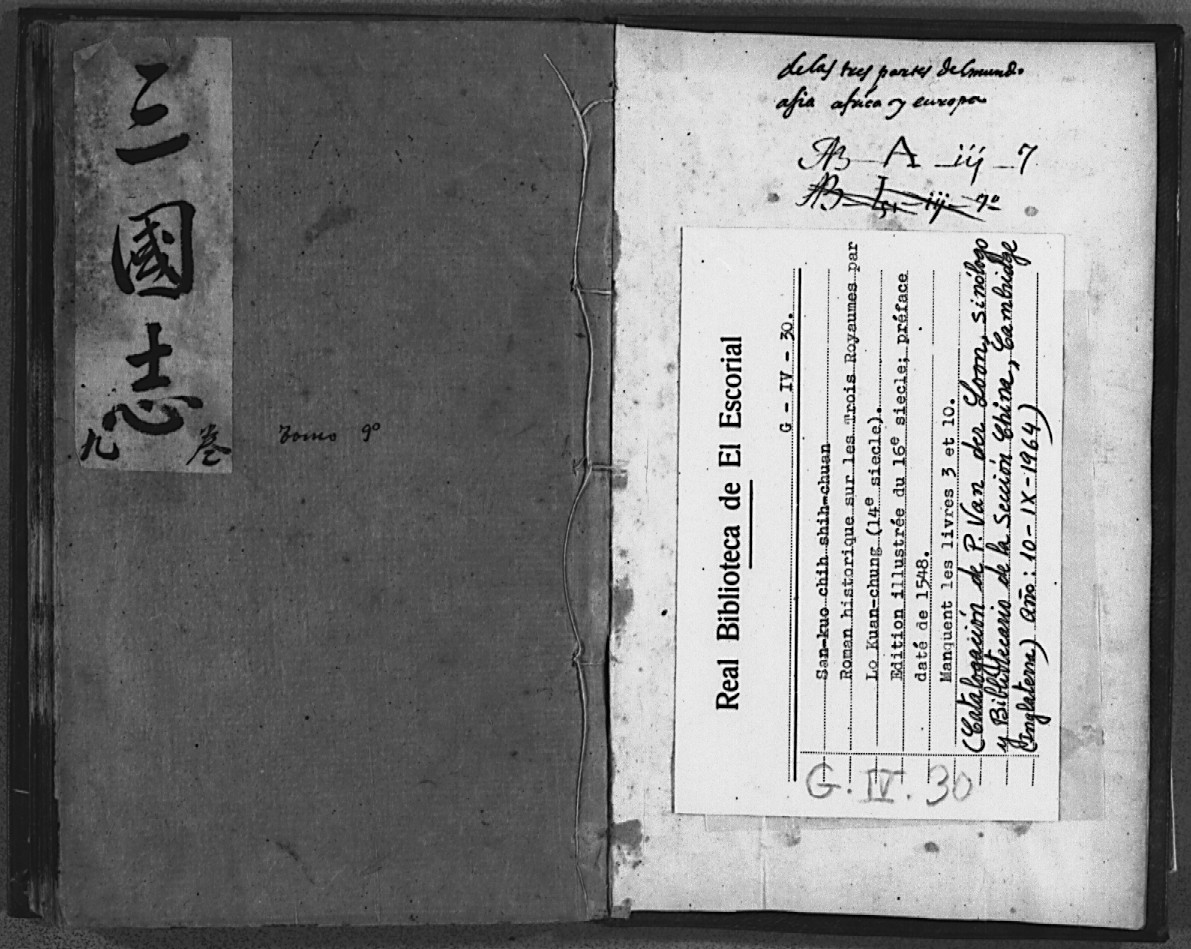 三國志
卷九
Tomo 9º
de las tres partes del mundo
asia africa y europa
AB A iij 7
AB L iij 7º
Real Biblioteca de El Escorial
G - IV - 30.
San-kuo chih shih-chuan
Roman historique sur les Trois Royaumes par
Lo Kuan-chung (14e siecle).
Edition illustrée du 16e siecle; préface
daté de 1548.
Manquent les livres 3 et 10.
(Catalogación de P. Van der Loon, sinólogo
y Bibliotecario de la Sección China, Cambridge
(Inglaterra) Año: 10-IX-1964)
G. IV. 30